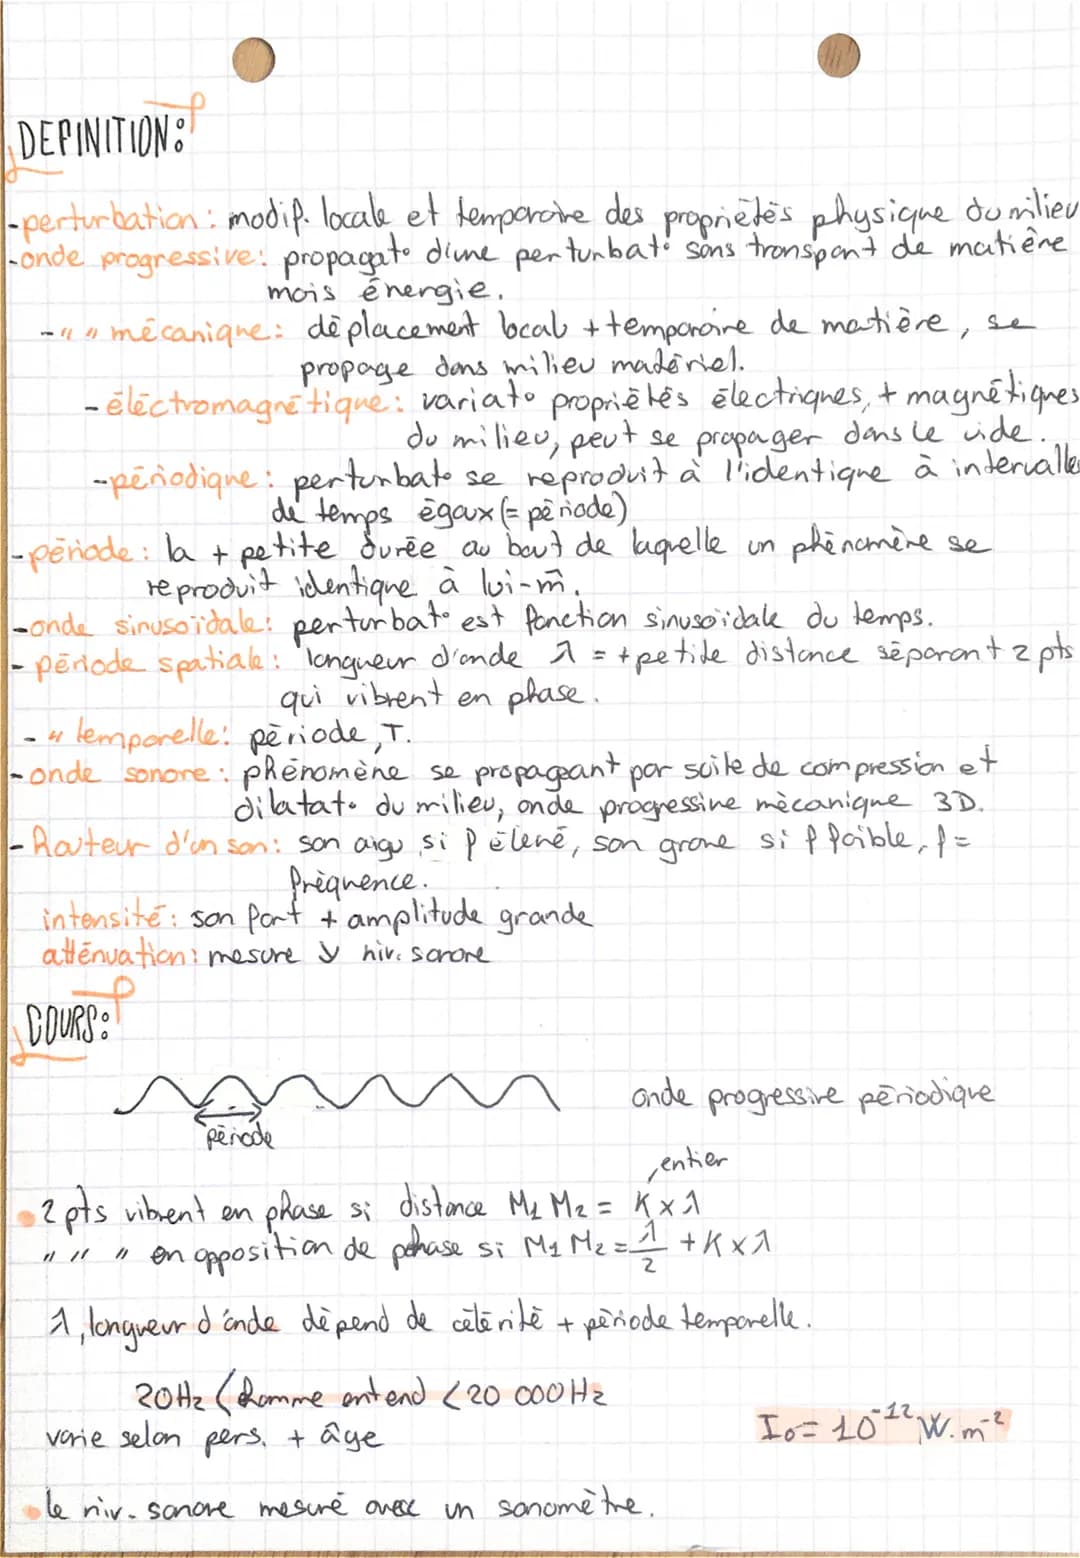 DEFINITION:
-perturbation: modif. locale et temporaire des propriétés physique du milieu
-onde progressive: propagat° d'une perturbat° sans transport de matière
mais énergie.
-" " mécanique: déplacement local + temporaire de matière, se
propage dans milieu matériel.
-électromagnétique: variat° propriétés électriques, + magnétiques
du milieu, peut se propager dans le vide.
-périodique: perturbat° se reproduit à l'identique à intervalles
de temps égaux (= période)
-période: la + petite durée au bout de laquelle un phénomère se
reproduit identique à lui-m̂.
-onde sinusoïdale: perturbat° est fonction sinusoïdale du temps.
- période spatiale: longueur d'onde λ = + petite distance séparant 2 pts
qui vibrent en phase.
- " temporelle: période, T.
-onde sonore: phénomène se propageant par suite de compression et
dilatat° du milieu, onde progressive mécanique 3D.
-Hauteur d'un son: son aigu si f élevé, son grave si f faible, f =
fréquence.
intensité: son fort + amplitude grande
atténuation: mesure ↘ niv. sonore
COURS:
onde progressive périodique
période
entier
• 2 pts vibrent en phase si distance M₁ M₂ = K × λ
" " " en opposition de phase si M₁ M₂ = λ/2 + K × λ
λ, longueur d'onde dépend de célérité + période temporelle.
20Hz < homme entend < 20 000 Hz
varie selon pers. + âge
I₀ = 10⁻¹² W.m⁻²
• le niv. sonore mesuré avec un sonomètre.